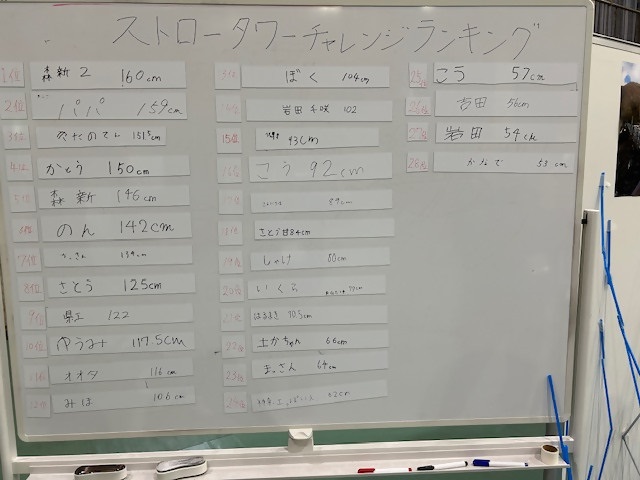 ストロータワーチャレンジランキング
1位 森新2 160cm
2位 パパ 159cm
151.5cm
4位 かとう 150cm
5位 森新 146cm
6位 のん 142cm
7位 139cm
8位 さとう 125cm
9位 県工 122
10位 ゆうみ 117.5cm
11位 オオタ 116cm
12位 みほ 106cm
ぼく 104cm
岩田千咲 102
15位 93cm
16位 こう 92cm
さとう甘84cm
19位 しゃけ 80cm
20位 いくら
21位 はるまき 70.5cm
22位 土かちゃん 66cm
23位 まっさん 64cm
24位 62cm
25位 こう 57cm
26位 吉田 56cm
27位 岩田 54cm
28位 かえで 53cm